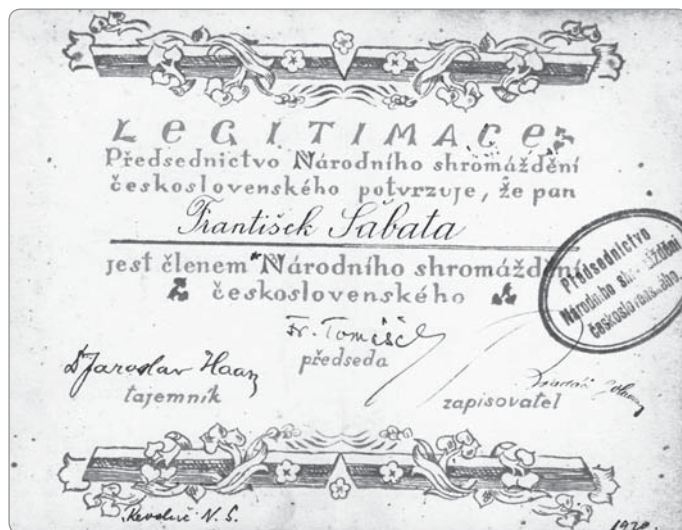 LEGITIMACE
Předsednictvo Národního shromáždění
československého potvrzuje, že pan
František Sabata
jest členem Národního shromáždění
československého
Předsednictvo
Národního shromáždění
československého.
Fr. Tomášek
předseda
Dr Jaroslav Haan
tajemník
zapisovatel
N. S.
1920.